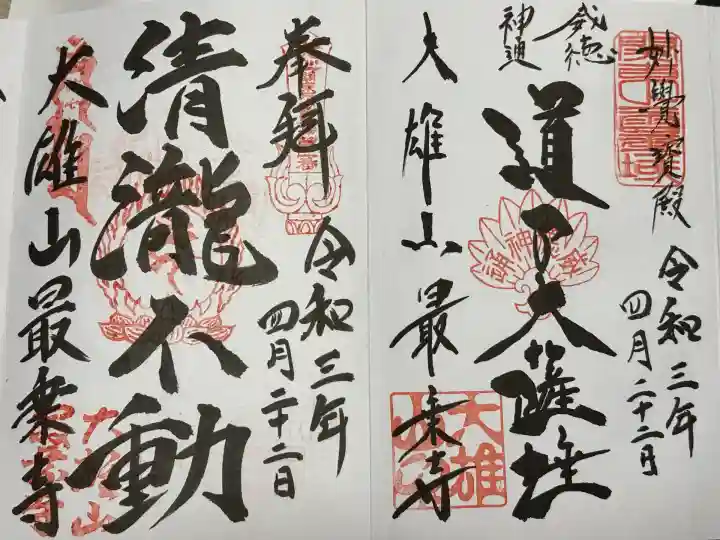 妙覺寳殿
令和三年
四月二十二日
威徳
神通
道了大薩埵
大雄山最乗寺
大雄
奉拝
令和三年
四月二十二日
清瀧不動
大雄山最乗寺